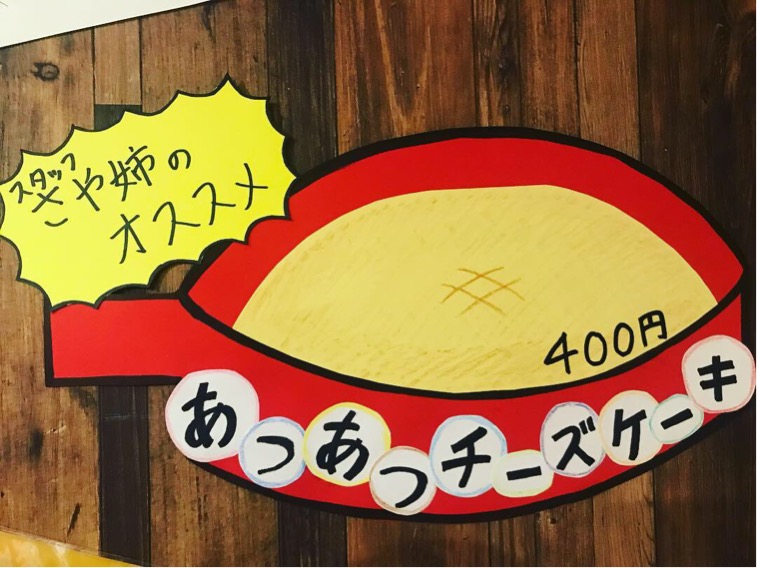 スタッフ
さや姉の
オススメ
400円
あつあつチーズケーキ